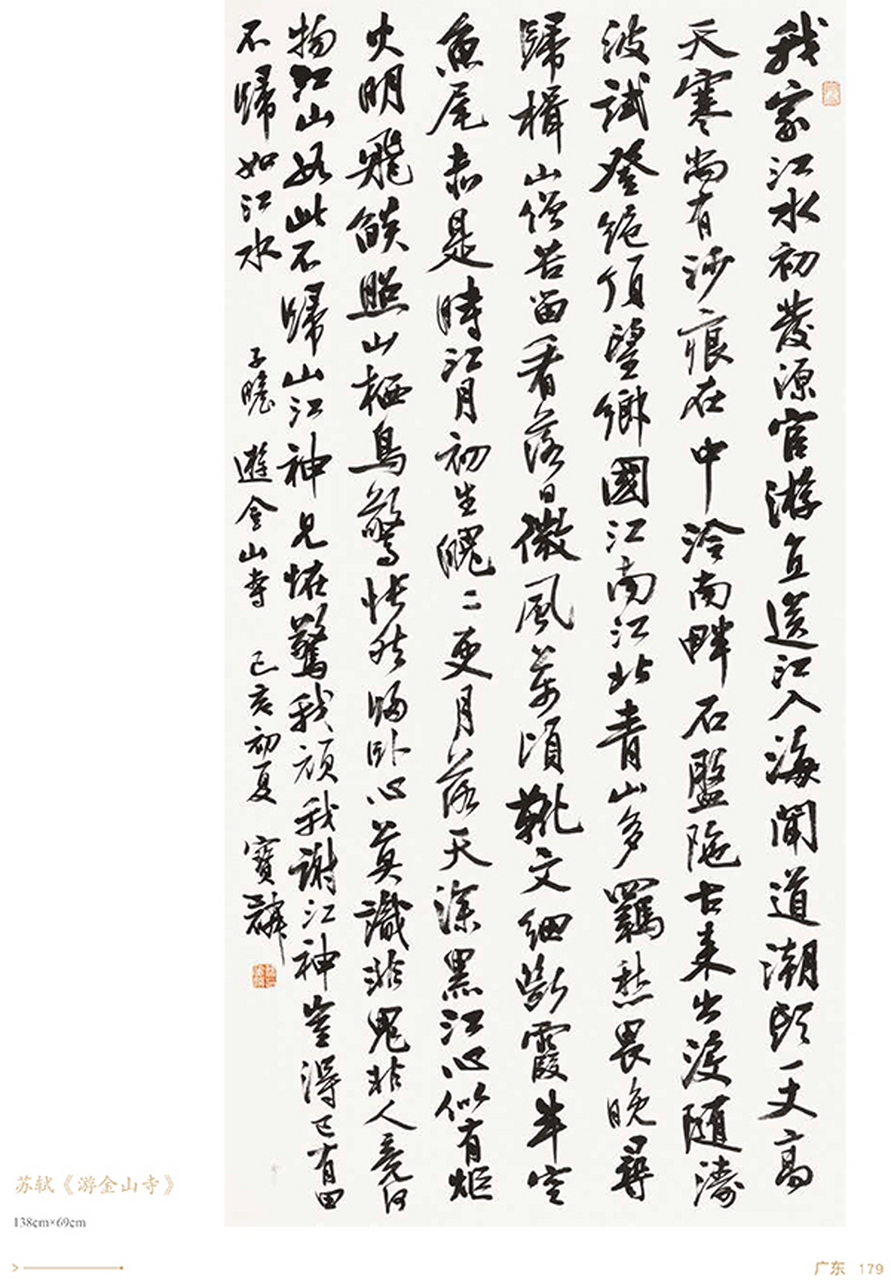 我家江水初發源宦游直送江入海聞道潮頭一丈高
天寒尚有沙痕在中泠南畔石盤陁古来出没随濤
波試登绝頂望鄉國江南江北青山多羈愁畏晚尋
歸楫山僧苦留看落日微風萬頃靴文細斷霞半空
魚尾赤是時江月初生魄二更月落天深黑江心似有炬
火明飛燄照山栖鳥驚悵然歸卧心莫識非鬼非人竟何
物江山如此不歸山江神見怪驚我頑我謝江神豈得已有田
不歸如江水
子瞻 遊金山寺 己亥初夏 寶麟
苏轼《游金山寺》
138cm×69cm
广东 179